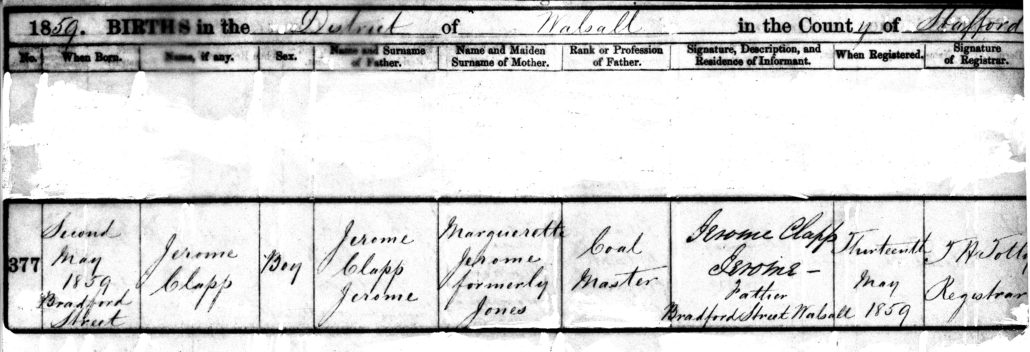 1859. BIRTHS in the District of Walsall in the County of Stafford
No. When Born. Name, if any. Sex. Name and Surname of Father. Name and Maiden Surname of Mother. Rank or Profession of Father. Signature, Description, and Residence of Informant. When Registered. Signature of Registrar.
377
Second
May
1859
Bradford
Street
Jerome
Clapp
Boy
Jerome
Clapp
Jerome
Marguerette
Jerome
formerly
Jones
Coal
Master
Jerome Clapp
Jerome –
Father
Bradford Street Walsall
Thirteenth
May
1859
Registrar